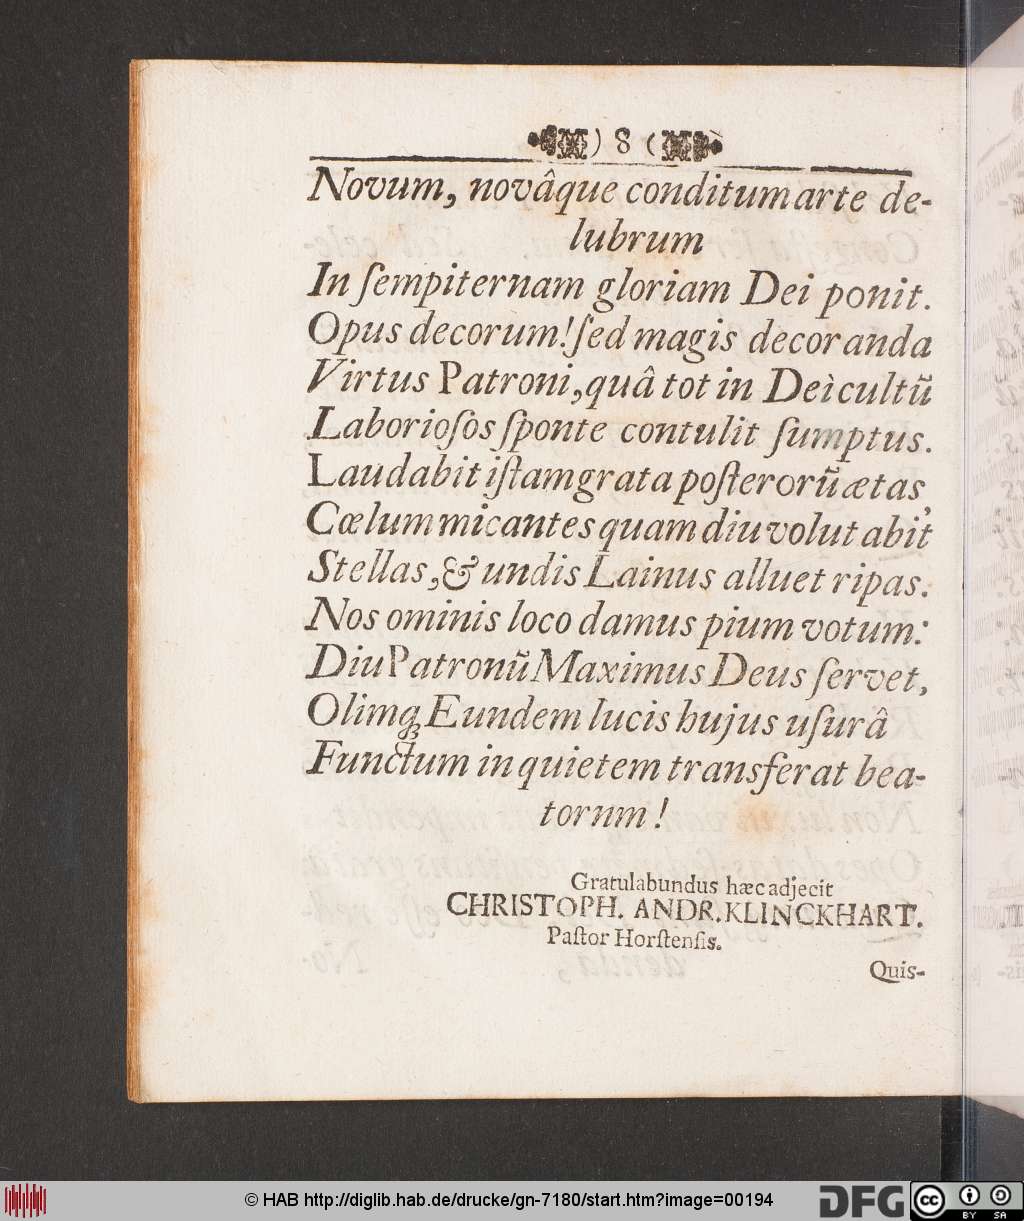 ) 8 (
Novum, novâque conditum arte de-
lubrum
In ſempiternam gloriam Dei ponit.
Opus decorum! ſed magis decoranda
Virtus Patroni, quâ tot in Dei cultũ
Laborioſos ſponte contulit ſumptus.
Laudabit iſtam grata poſterorũ ætas,
Cœlum micantes quam diu volutabit
Stellas, & undis Lainus alluet ripas.
Nos ominis loco damus pium votum:
Diu Patronũ Maximus Deus ſervet,
Olimq; Eundem lucis hujus uſurâ
Functum in quietem transferat bea-
torum!
Gratulabundus hæc adjecit
CHRISTOPH. ANDR. KLINCKHART.
Paſtor Horſtenſis.
Quis-
© HAB http://diglib.hab.de/drucke/gn-7180/start.htm?image=00194
DFG
cc BY SA